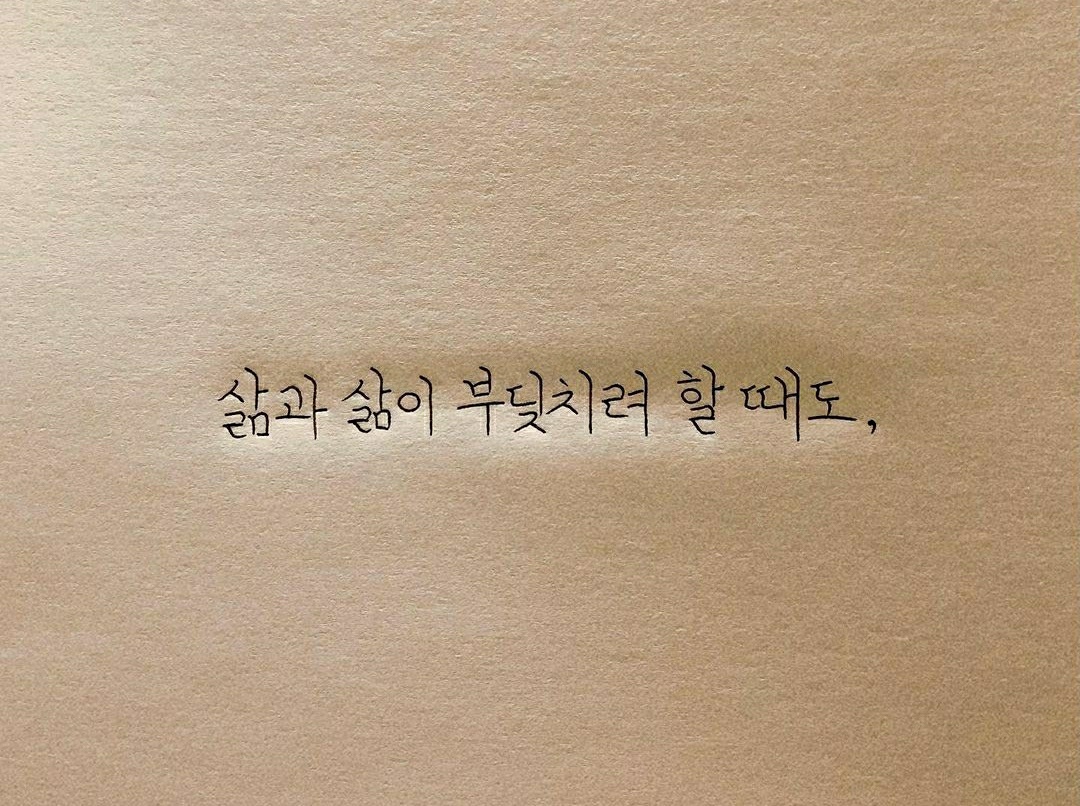 삶과 삶이 부딪치려 할 때도,